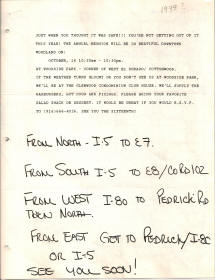 1999?
JUST WHEN YOU THOUGHT IT WAS SAFE!!! YOU'RE NOT GETTING OUT OF IT
THIS YEAR! THE ANNUAL REUNION WILL BE IN BEAUTIFUL DOWNTOWN
WOODLAND ON:
OCTOBER, 16 10:30am - 10:30pm.
AT WOODSIDE PARK - CORNER OF WEST EL DORADO/ COTTONWOOD.
IF THE WEATHER TURNS GLOOMY OR YOU DON'T SEE US AT WOODSIDE PARK,
WE'LL BE AT THE GLENWOOD CONDOMINIUM CLUB HOUSE. WE'LL SUPPLY THE
HAMBURGERS, HOT DOGS AND FIXINGS. PLEASE BRING YOUR FAVORITE
SALAD SNACK OR DESSERT. IT WOULD BE GREAT IF YOU WOULD R.S.V.P.
TO (916)
FROM NORTH - I-5 TO E7.
FROM SOUTH I-5 TO E8/CORD102
FROM WEST I-80 TO PEDRICK RD
THEN NORTH.
FROM EAST GET TO PEDRICK/I-80
OR I-5
SEE YOU SOON!